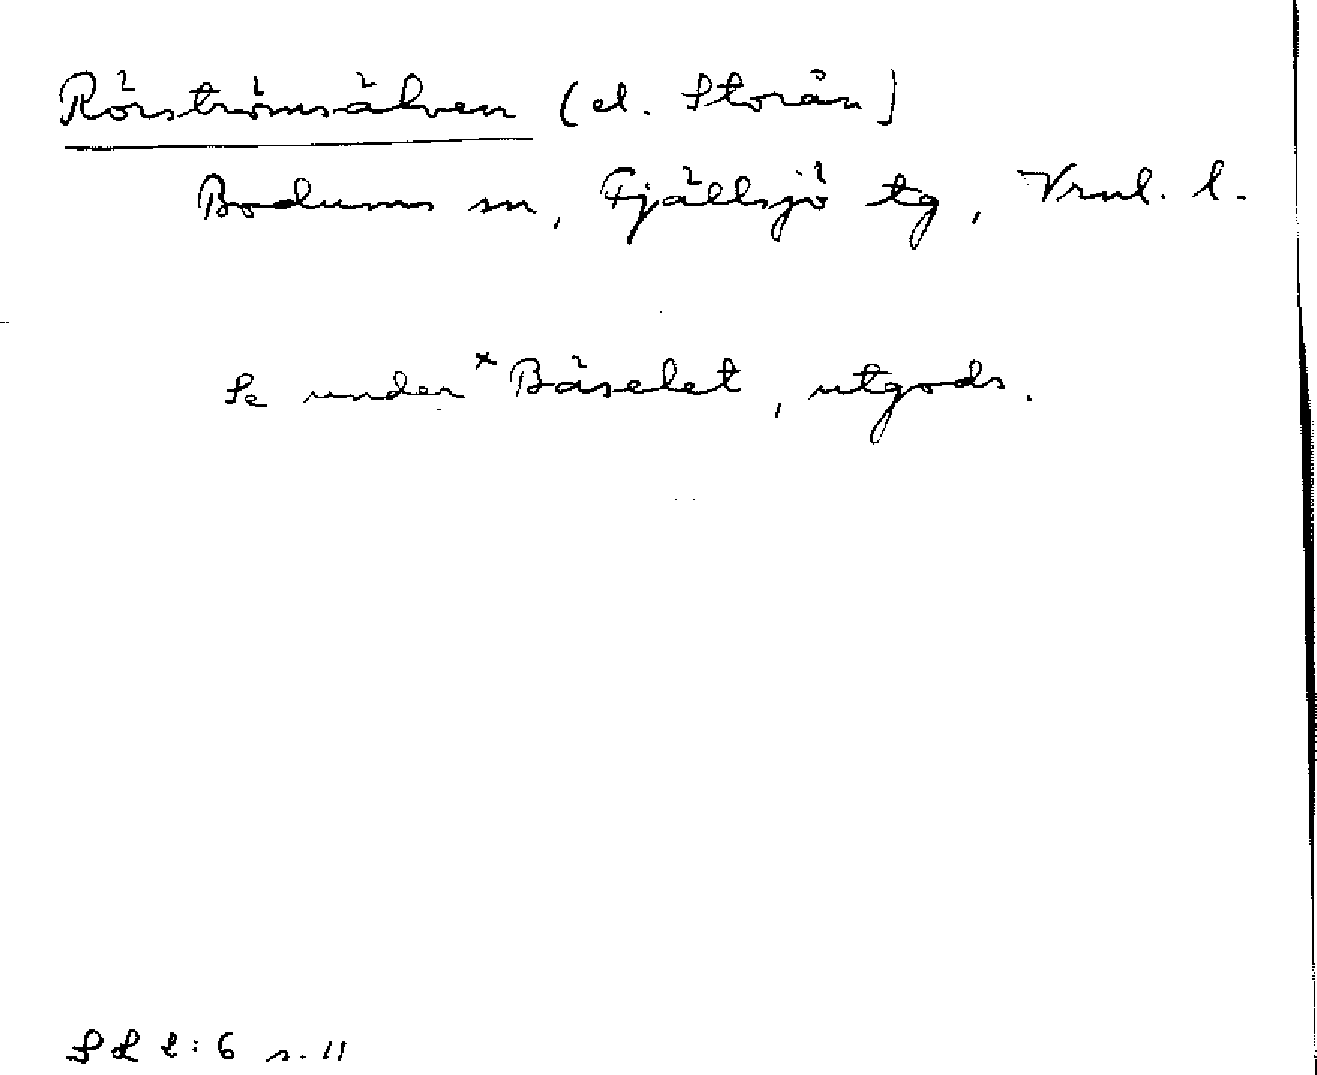 Rörströmsälven (el. Storån)
Bodums sn, Fjällsjö tg, Vrnl. l.
Se under *Bäselet, utgods.
s. 11